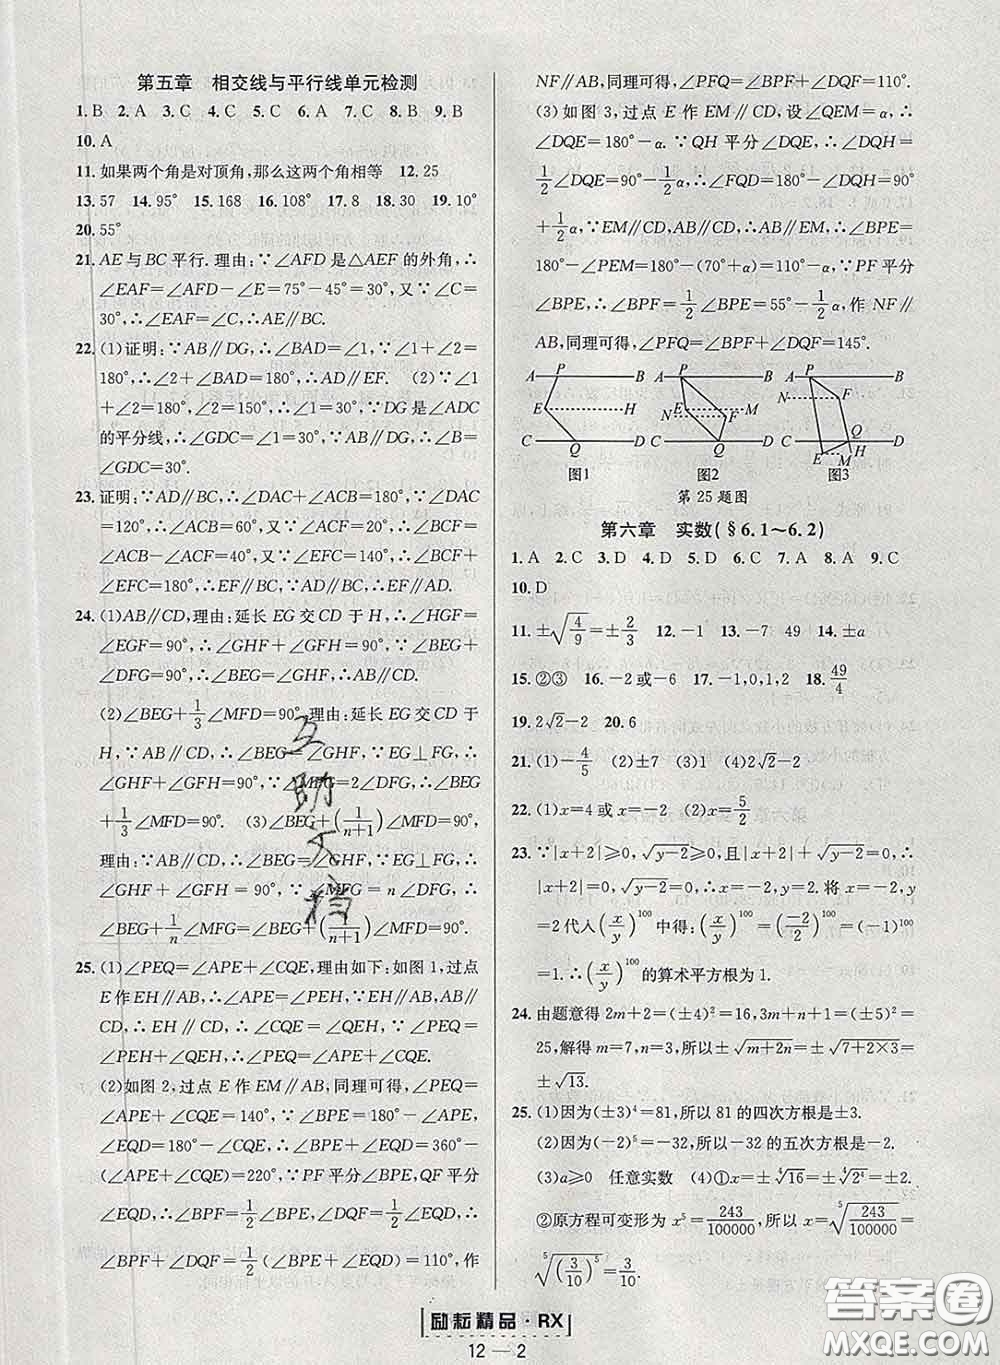 第五章 相交线与平行线单元检测
1. B 2. A 3. C 4. C 5. C 6. A 7. C 8. B 9. B
10. A
11. 如果两个角是对顶角,那么这两个角相等 12. 25
13. 57 14. 95° 15. 168 16. 108° 17. 8 18. 30 19. 10°
20. 55°
21. AE与BC平行.理由:∵∠AFD是△AEF的外角,∴
∠EAF=∠AFD-∠E=75°-45°=30°,又∵∠C=
30°,∴∠EAF=∠C,∴AE∥BC.
22. (1)证明:∵AB∥DG,∴∠BAD=∠1,∵∠1+∠2=
180°,∴∠2+∠BAD=180°,∴AD∥EF. (2)∵∠1
+∠2=180°,∠2=150°,∴∠1=30°,∵DG是∠ADC
的平分线,∴∠GDC=∠1=30°,∵AB∥DG,∴∠B=
∠GDC=30°.
23. 证明:∵AD∥BC,∴∠DAC+∠ACB=180°,∵∠DAC
=120°,∴∠ACB=60°,又∵∠ACF=20°,∴∠BCF=
∠ACB-∠ACF=40°,又∵∠EFC=140°,∴∠BCF+
∠EFC=180°,∴EF∥BC,∵AD∥BC,∴EF∥AD.
24. (1)AB∥CD,理由:延长EG交CD于H,∴∠HGF=
∠EGF=90°,∴∠GHF+∠GFH=90°,∵∠BEG+
∠DFG=90°,∴∠BEG=∠GHF,∴AB∥CD.
(2)∠BEG+1/3∠MFD=90°,理由:延长EG交CD于
H,∵AB∥CD,∴∠BEG=∠GHF,∵EG⊥FG,∴
∠GHF+∠GFH=90°,∵∠MFG=2∠DFG,∴∠BEG+
1/3∠MFD=90°. (3)∠BEG+(1/(n+1))∠MFD=90°,
理由:∵AB∥CD,∴∠BEG=∠GHF,∵EG⊥FG,∴
∠GHF+∠GFH=90°,∵∠MFG=n∠DFG,∴
∠BEG+1/n∠MFG=∠BEG+(1/(n+1))∠MFD=90°.
25. (1)∠PEQ=∠APE+∠CQE,理由如下:如图1,过点
E作EH∥AB,∴∠APE=∠PEH,∵EH∥AB,AB∥
CD,∴EH∥CD,∴∠CQE=∠QEH,∵∠PEQ=
∠PEH+∠QEH,∴∠PEQ=∠APE+∠CQE.
(2)如图2,过点E作EM∥AB,同理可得,∠PEQ=
∠APE+∠CQE=140°,∵∠BPE=180°-∠APE,
∠EQD=180°-∠CQE,∴∠BPE+∠EQD=360°-
(∠APE+∠CQE)=220°,∵PF平分∠BPE,QF平分
∠EQD,∴∠BPF=1/2∠BPE,∠DQF=1/2∠EQD,∴
∠BPF+∠DQF=1/2(∠BPE+∠EQD)=110°,作
NF∥AB,同理可得,∠PFQ=∠BPF+∠DQF=110°.
(3)如图3,过点E作EM∥CD,设∠QEM=α,∴
∠DQE=180°-α.∵QH平分∠DQE,∴∠DQH=
1/2∠DQE=90°-1/2α,∴∠FQD=180°-∠DQH=90°
+1/2α,∵EM∥CD,AB∥CD,∴AB∥EM,∴∠BPE=
180°-∠PEM=180°-(70°+α)=110°-α,∵PF平分
∠BPE,∴∠BPF=1/2∠BPE=55°-1/2α,作NF∥
AB,同理可得,∠PFQ=∠BPF+∠DQF=145°.
A P B E H C Q D
图1
A P B E M N F C Q D
图2
A P B N F C Q D E M H
图3
第25题图
第六章 实数(§6.1~6.2)
1. A 2. C 3. D 4. D 5. D 6. C 7. A 8. A 9. C
10. D
11. ±√(4/9)=±2/3 12. -1 13. -7 49 14. ±a
15. ②③ 16. -2或-6 17. -1,0,1,2 18. 49/4
19. 2√2-2 20. 6
21. (1)-4/5 (2)±7 (3)1 (4)2√2-2
22. (1)x=4或x=-2 (2)x=5/2
23. ∵|x+2|≥0,√(y-2)≥0,且|x+2|+√(y-2)=0,∴
|x+2|=0,√(y-2)=0,∴x=-2,y=2.将x=-2,y
=2代人(x/y)^100中得:(x/y)^100=(-2/2)^100=(-1)^100
=1.∴(x/y)^100的算术平方根为1.
24. 由题意得2m+2=(±4)²=16,3m+n+1=(±5)²=
25,解得m=7,n=3,所以±√(m+2n)=±√(7+2×3)=
±√13.
25. (1)因为(±3)⁴=81,所以81的四次方根是±3.
(2)因为(-2)⁵=-32,所以-32的五次方根是-2.
(3)a≥0 任意实数 (4)①x=±⁴√16=±⁴√(2⁴)=±2.
②原方程可变形为x⁵=243/100000,x=⁵√(243/100000)=
⁵√((3/10)⁵)=3/10.
互助文档
励耘精品·RX
12—2
答案圈
MXQE.COM